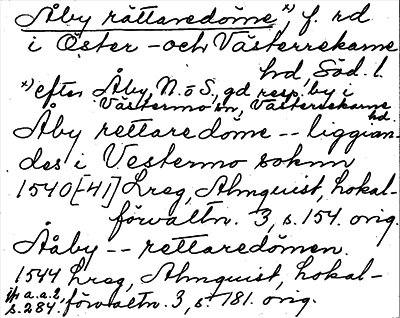 Åby rättaredöme,*) f. rd
i Öster- och Västerrekarne
hd, Söd. l.
*) efter Åby, N. o S., gd resp. by i
Västermo sn, Västerrekarne
hd.
Åby rettaredöme -- liggian-
des i Vestermo soknn
1540[-41] Lreg, Almquist, Lokal-
förvaltn. 3, s. 154. orig.
Ååby -- rettaredömen.
1544 Lreg, Almquist, Lokal-
förvaltn. 3, s. 181. orig.
jfr a.a. 2,
s. 284.